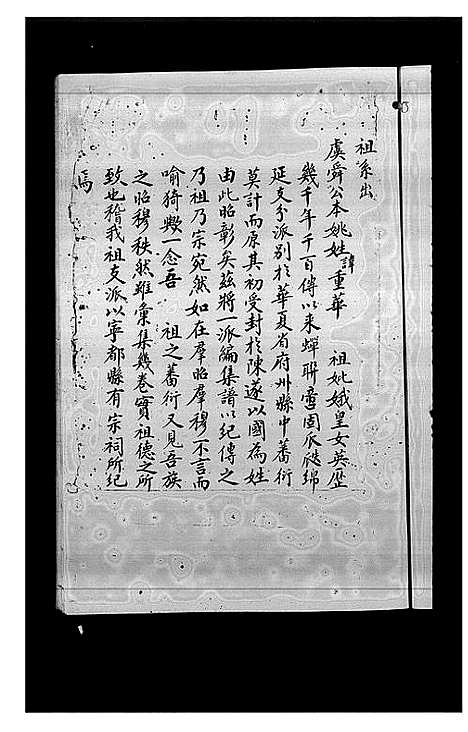 祖系出
虞舜公本姚姓諱重華 祖妣娥皇女英歷
幾千年千百傳以來蟬聯壹固瓜瓞綿
延支分派別於華夏省府州縣中蕃衍
莫計而原其初受封於陳遂以國為姓
由此昭彰矣茲將一派編集譜以紀傳之
乃祖乃宗宛然如在羣昭羣穆不言而
喻猗歟一念吾 祖之蕃衍又見吾族
之昭穆秩然雖彙集幾卷實祖德之所
致也稽我祖支派以寧都縣有宗祠所紀
焉